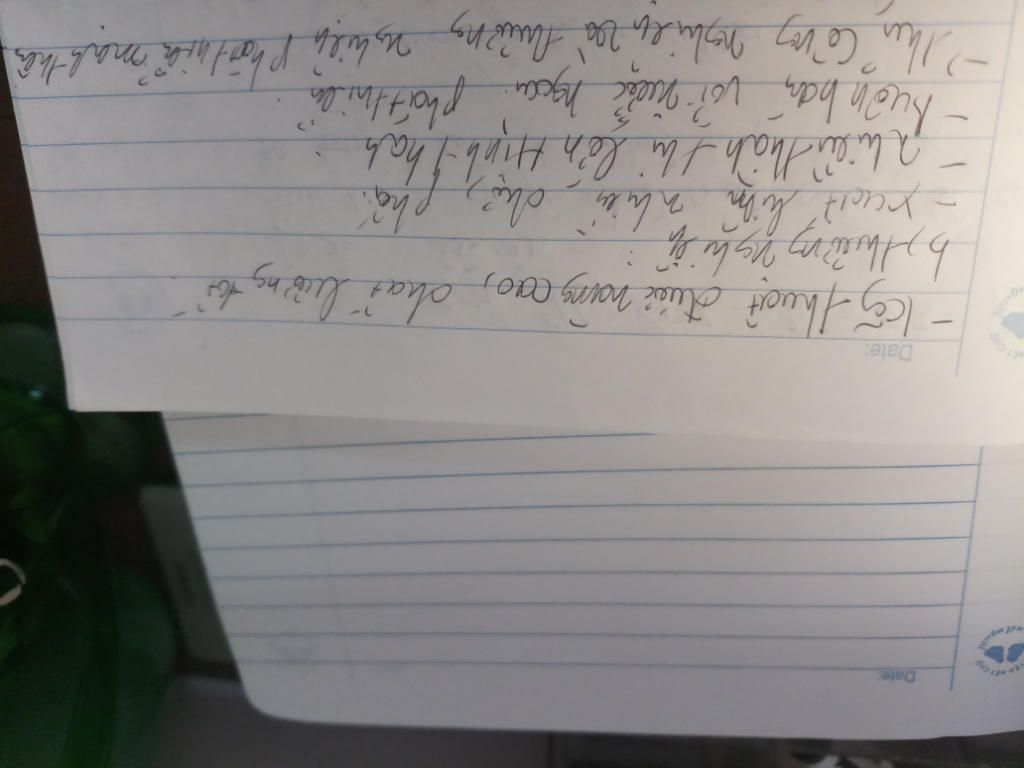 Date:
- kỹ thuật được nâng cao, chất lượng tốt
b, thương nghiệp:
- xuất hiện nhiều chợ, phố.
- nhiều thành thị lớn hình thành
- buôn bán với nước ngoài phát triển
-> thủ công nghiệp và thương nghiệp phát triển mạnh mẽ
Date: